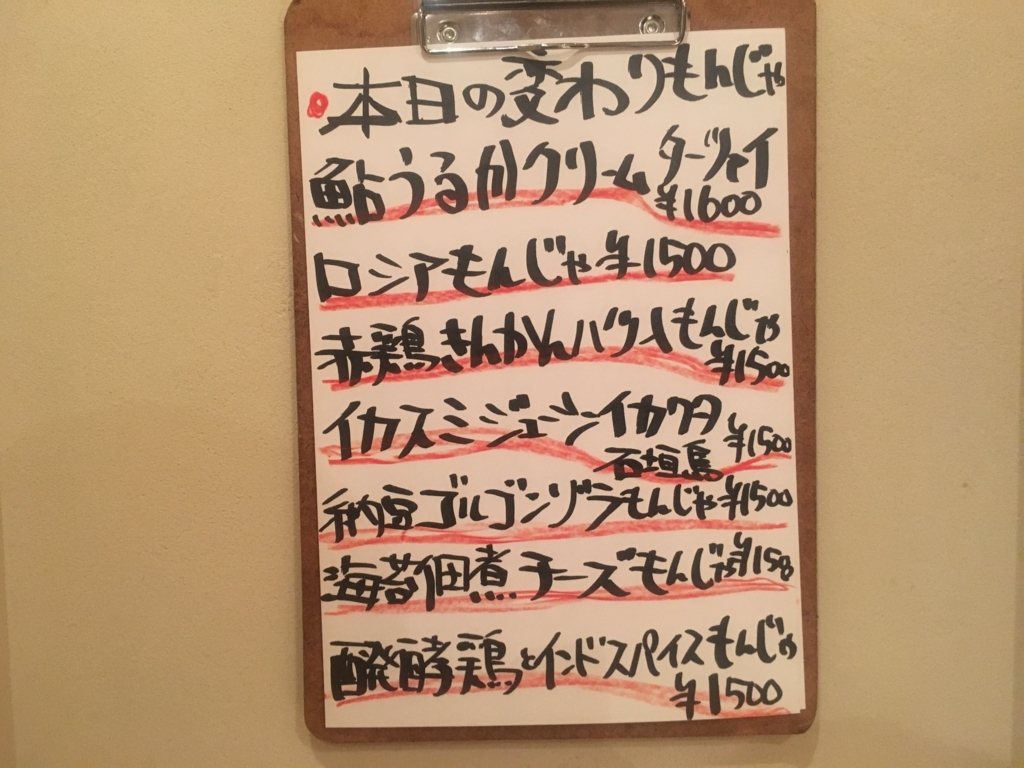 本日の変わりもんじゃ
鮎うるかクリーム
¥1600
ロシアもんじゃ¥1500
赤鶏きんかんパクチーもんじゃ
¥1500
イカスミジェーシンイカワタ
¥1500
石垣島
納豆ゴルゴンゾラもんじゃ¥1500
海苔佃煮チーズもんじゃ
醗酵鶏とインドスパイスもんじゃ
¥1500